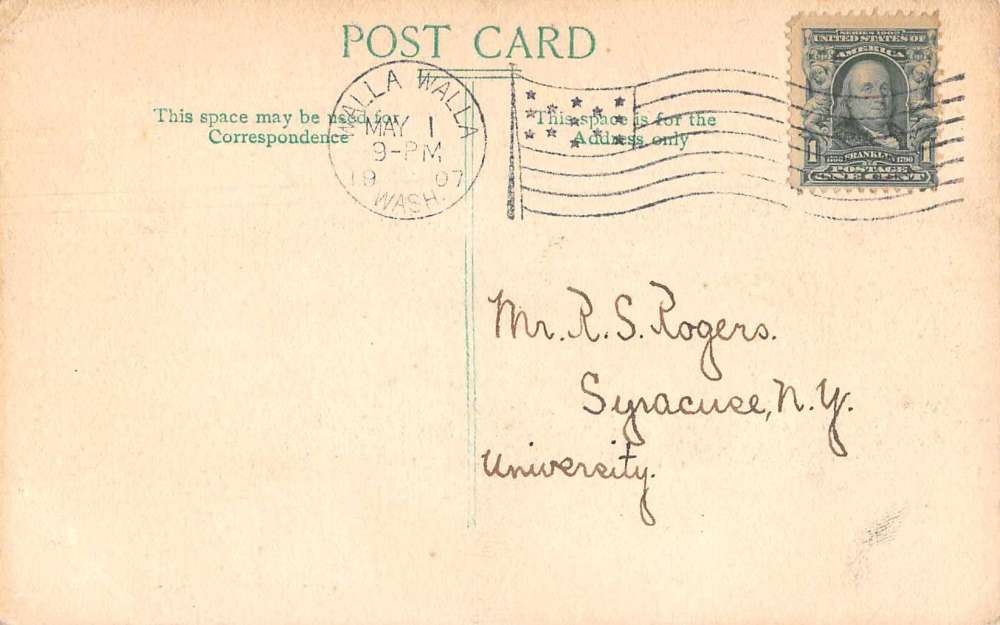 POST CARD
This space may be used for
Correspondence
This space is for the
Address only
WALLA WALLA
MAY 1
9-PM
1907
WASH.
SERIES 1902
UNITED STATES OF
AMERICA
1 FRANKLIN 1
1706 1790
POSTAGE
ONE CENT
Mr. R. S. Rogers.
Syracuse, N. Y.
University.